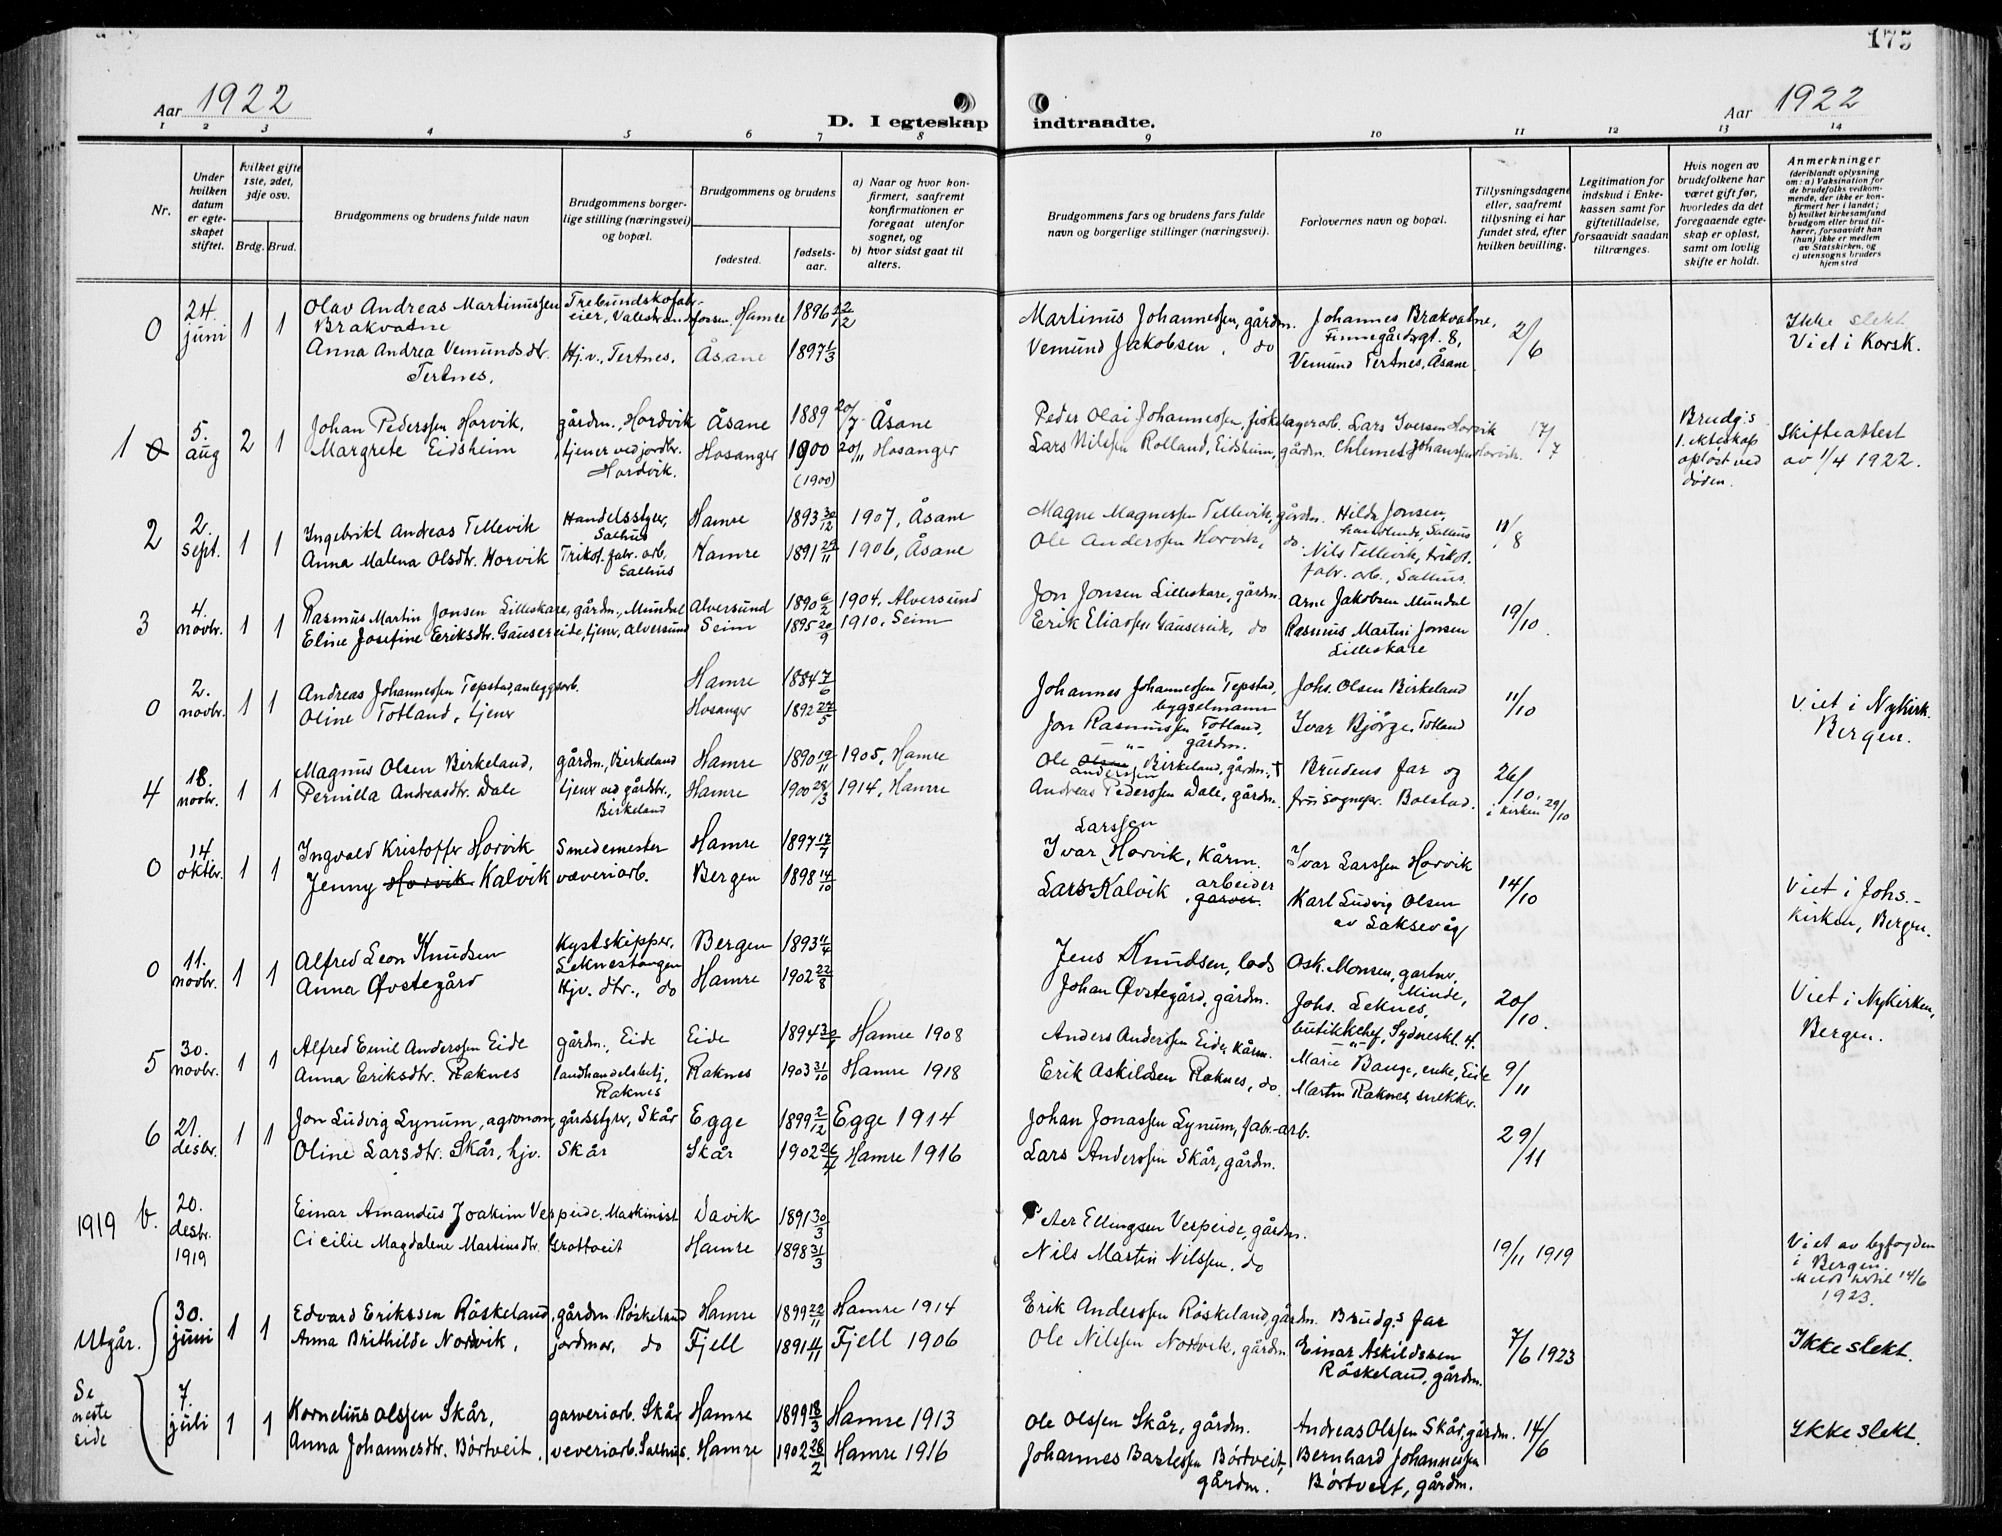 175
Aar 1922
D. I egteskap indtraadte.
Aar 1922
1 2 3 4 5 6 7 8 9 10 11 12 13 14
Nr.
Under hvilken datum er egteskapet stiftet.
Hvilket gifte 1ste, 2det, 3dje osv.
Brdg. Brud.
Brudgommens og brudens fulde navn
Brudgommens borgerlige stilling (næringsvei) og bopæl.
Brudgommens og brudens
fødested.
fødselsaar.
a) Naar og hvor konfirmert, saafremt konfirmationen er foregaat utenfor sognet, og
b) hvor sidst gaat til alters.
Brudgommens fars og brudens fars fulde navn og borgerlige stillinger (næringsvei).
Forlovernes navn og bopæl.
Tillysningsdagene eller, saafremt tillysning ei har fundet sted, efter hvilken bevilling.
Legitimation for indskud i Enkekassen samt for giftetilladelse, forsaavidt saadan tiltrænges.
Hvis nogen av brudefolkene har været gift før, hvorledes da det foregaaende egteskap er opløst, samt om lovlig skifte er holdt.
Anmerkninger (deriblandt oplysning om: a) Vaksination for de brudefolks vedkommende, der ikke er konfirmert her i landet; b) hvilket kirkesamfund brudgom eller brud tilhører, forsaavidt han (hun) ikke er medlem av Statskirken, og c) utensogns bruders hjemsted
0 24. juni 1 1 Olav Andreas Martinussen Brakvatne Trebundskofabr.eier, Valestrandsfossen. Hamre 1896 12/12 Martinus Johannessen, gårdm. Johannes Brakvatne, Finnegårdsgt. 8, 2/6 Ikke slekt
Anna Andrea Vemundsdtr. Tertnes. Hj.v., Tertnes. Åsane 1897 1/3 Vemund Jakobsen, do Vemund Tertnes, Åsane. Viet i Korsk.
1 0 5. aug 2 1 Johan Pederssen Horvik, gårdm., Hordvik Åsane 1889 20/7 Åsane Peder Olai Johannessen, fiskelagerarb. Lars Iversen Horvik 17/7 Brudg.s 1. ekteskap opløst ved døden. Skifteattest av 1/4 1922.
Margrete Eidsheim tjener ved jordbr. Hordvik. Hosanger 1900 (1900) 20/11 Hosanger Lars Nilssen Rolland, Eidsheim, gårdm. Johanssen Horvik.
2 2. sept. 1 1 Ingebrikt Andreas Tellevik Handelsstyrer, Salhus Hamre 1893 30/12 1907, Åsane Magne Magnessen Tellevik, gårdm. Hilda Jonsen, handlende, Salhus 11/8
Anna Malena Olsdtr. Horvik Trikot.fabr.arb. Salhus Hamre 1891 29/11 1906, Åsane Ole Anderssen Horvik, do. Nils Tellevik, trikot.fabr.arb., Salhus.
3 4. novbr. 1 1 Rasmus Martin Jonsen Lilleskare, gårdm., Mundal Alversund 1890 6/2 1904, Alversund Jon Jonsen Lilleskare, gårdm. Arne Jakobsen Mundal 19/10.
Eline Josefine Eriksdtr. Gausereide, tjener, Alversund Seim 1895 20/9 1910, Seim Erik Eliassen Gausereide, do Rasmus Martin Jonsen Lilleskare
0 2. novbr. 1 1 Andreas Johannessen Tepstad, anleggsarb. Hamre 1884 7/6 Johannes Johannessen Tepstad, bygselmann Johs. Olsen Birkeland 11/10 Viet i Nykirk. Bergen.
Oline Totland, tjener Hosanger 1892 27/5 Jon Rasmussen Totland, gårdm. Ivar Bjørge, Totland
4 18. novbr. 1 1 Magnus Olsen Birkeland, gårdm., Birkeland Hamre 1890 19/11 1905, Hamre Ole Olsen Anderssen Birkeland, gårdm. † Brudens far og 26/10. i kirken 29/10
Pernilla Andreasdtr. Dale tjener ved gårdbr., Birkeland Hamre 1900 28/3 1914, Hamre Andreas Pederssen Dale, gårdm. frü sognepr. Bolstad.
0 14 oktbr. 1 1 Ingvald Kristoffer Horvik Smedemester Hamre 1897 17/7 Ivar Larssen Horvik, kårm. Ivar Larssen Horvik 14/10 Viet i Johs.-kirken, Bergen.
Jenny Horvik Kalvik væveriarb. Bergen 1898 14/10 Lars Kalvik, arbeider garver. Karl Ludvig Olsen av Laksevåg
0 11. novbr. 1 1 Alfred Leon Knudsen Kystskipper, Leknestangen Bergen 1893 11/4 Jens Knudsen, lods Osk. Monsen, gartner, Minde, 20/10. Viet i Nykirken, Bergen.
Anna Øvstegård Hjv. dtr., do Hamre 1902 22/8 Johan Øvstegård, gårdm. Johs. Leknes, butikkchef, Sydneskl. 4.
5 30. novbr. 1 1 Alfred Emil Anderssen Eide gårdm., Eide Eide 1894 Hamre 1908 Anders Anderssen Eide, kårm. Marie Bauge, enke, Eide 9/11
Anna Eriksdtr. Raknes landhandelsbetj. Raknes Raknes 1903 31/10 Hamre 1918 Erik Askildsen Raknes, do. Martin Raknes, snekker.
6 21. desbr. 1 1 Jon Ludvig Lynum, agronom, gårdsstyrer, Skår Egge 1899 2/12 Egge 1914 Johan Jonassen Lynum, fabr.-arb. 29/11
Oline Larsdtr. Skår, hjv. Skår Skår 1902 26/4 Hamre 1916 Lars Anderssen Skår, gårdm.
1919 b. 20. desbr. 1919 Einar Amandus Joakim Verpeide. Maskinist Davik 1891 30/3 Peter Ellingsen Verpeide, gårdm. 19/11 1919 Viet av byfogden i Bergen. Meldt hertil 14/6 1923.
Cicilie Magdalene Martinsdtr. Grottveit Hamre 1898 31/3 Nils Martin Nilssen, do
Utgår. Se neste side
30. juni 1 1 Edvard Erikssen Röskeland, gårdm Röskeland Hamre 1899 22/11 Hamre 1914 Erik Anderssen Röskeland, gårdm. Brudg.s far 7/6 1923 Ikke slekt.
Anna Brithilde Nordvik, jordmor, do Fjell 1891 4/11 Fjell 1906 Ole Nilssen Nordvik, gårdm Einar Askildsen Röskeland, gårdm.
7. juli 1 1 Kornelius Olssen Skår, garveriarb. Skår Hamre 1899 18/3 Hamre 1913 Ole Olssen Skår, gårdm. Andreas Olssen Skår, gårdm. 14/6 Ikke slekt.
Anna Johannesdtr. Børtveit, veveriarb. Salhus. Hamre 1902 28/2 Hamre 1916 Johannes Bartessen Børtveit, gårdm. Bernhard Johannessen Børtveit, gårdm.